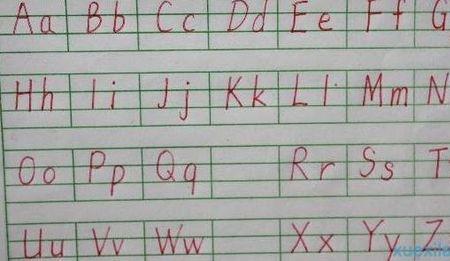 Aa Bb Cc Dd Ee Ff G
Hh Ii Jj Kk Ll Mm N
Oo Pp Qq Rr Ss T
Uu Vv Ww Xx Yy Z